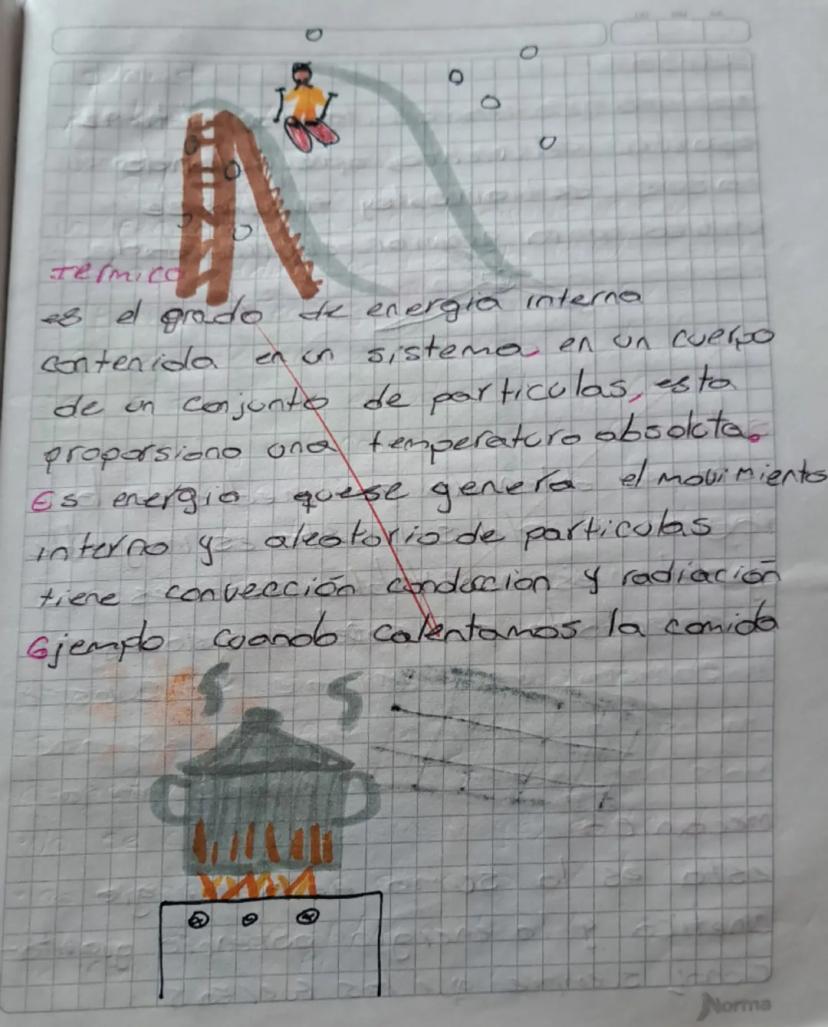 termico
es el grado de energia interna
contenida en un sistema, en un cuerpo
de un conjunto de particulas, esta
proporsiono una temperatura absoluta.
Es energia quese genera el movimiento
interno y aleatorio de particulas
tiene convección conduccion y radiación
Ejemplo cuando calentamos la comida
Norma